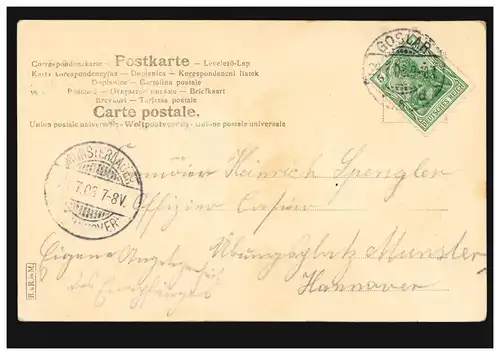 Postkarte
Correspondenzkarte — Levelező-Lap
Karta korespondencyjna — Dopisnice — Korespondenční lístek
Dopisnica — Cartolina postale
Postcard — Открытое письмо — Briefkaart
Brevkort — Tarjeta postal
Carte postale.
Union postale universelle — Weltpostverein — Unione postale universale
GOSLAR
DEUTSCHES REICH
MUNSTERLAGER
7.05 7-8V.
(HANNOVER)
Heinrich Spengler
Offizier Casino
Übungsplatz Munster
Eigene Angelegenheit
des Empfängers
Hannover
B. & R. in M.